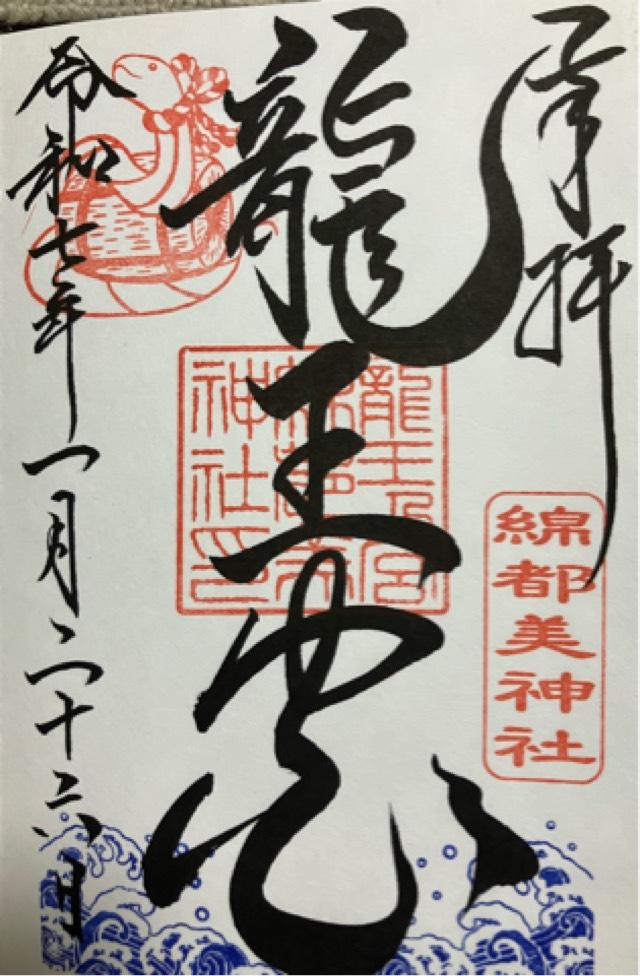 奉拝
綿都美神社
龍王
龍王宮
綿都美
神社印
令和七年一月二十六日